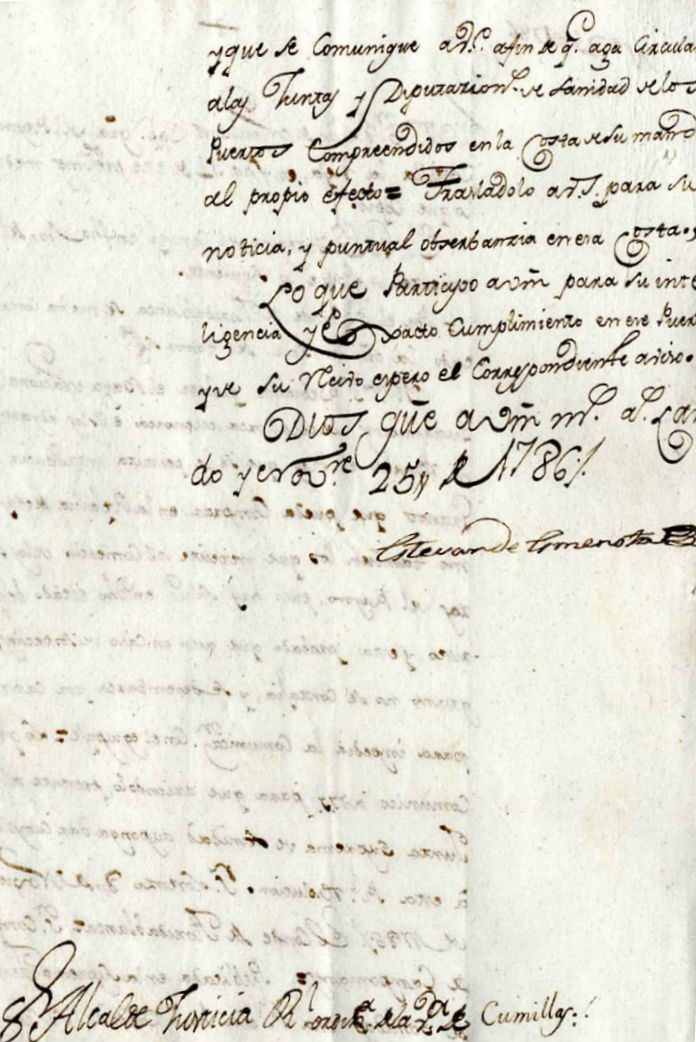 y que se Comunique a V.S. afin de q.e aga Circula
a las Juntas y Diputacion.s de Sanidad de los
Puertos Compreendidos en la Costa de su mando
al propio efecto = Trasladolo a V.S. para su
noticia, y puntual obserbanzia en esa Costa.
Lo que Participo a Vm̃ para su inte
ligencia y exacto Cumplimiento en ese Puer
y de su Recivo espero el Correspondiente aviso.
Dios gũe a Vm̃ m.s a.s La
do y en 25,, de 1786
Estevan de
Alcalde Justicia R.l de la V.a de Cumillas.